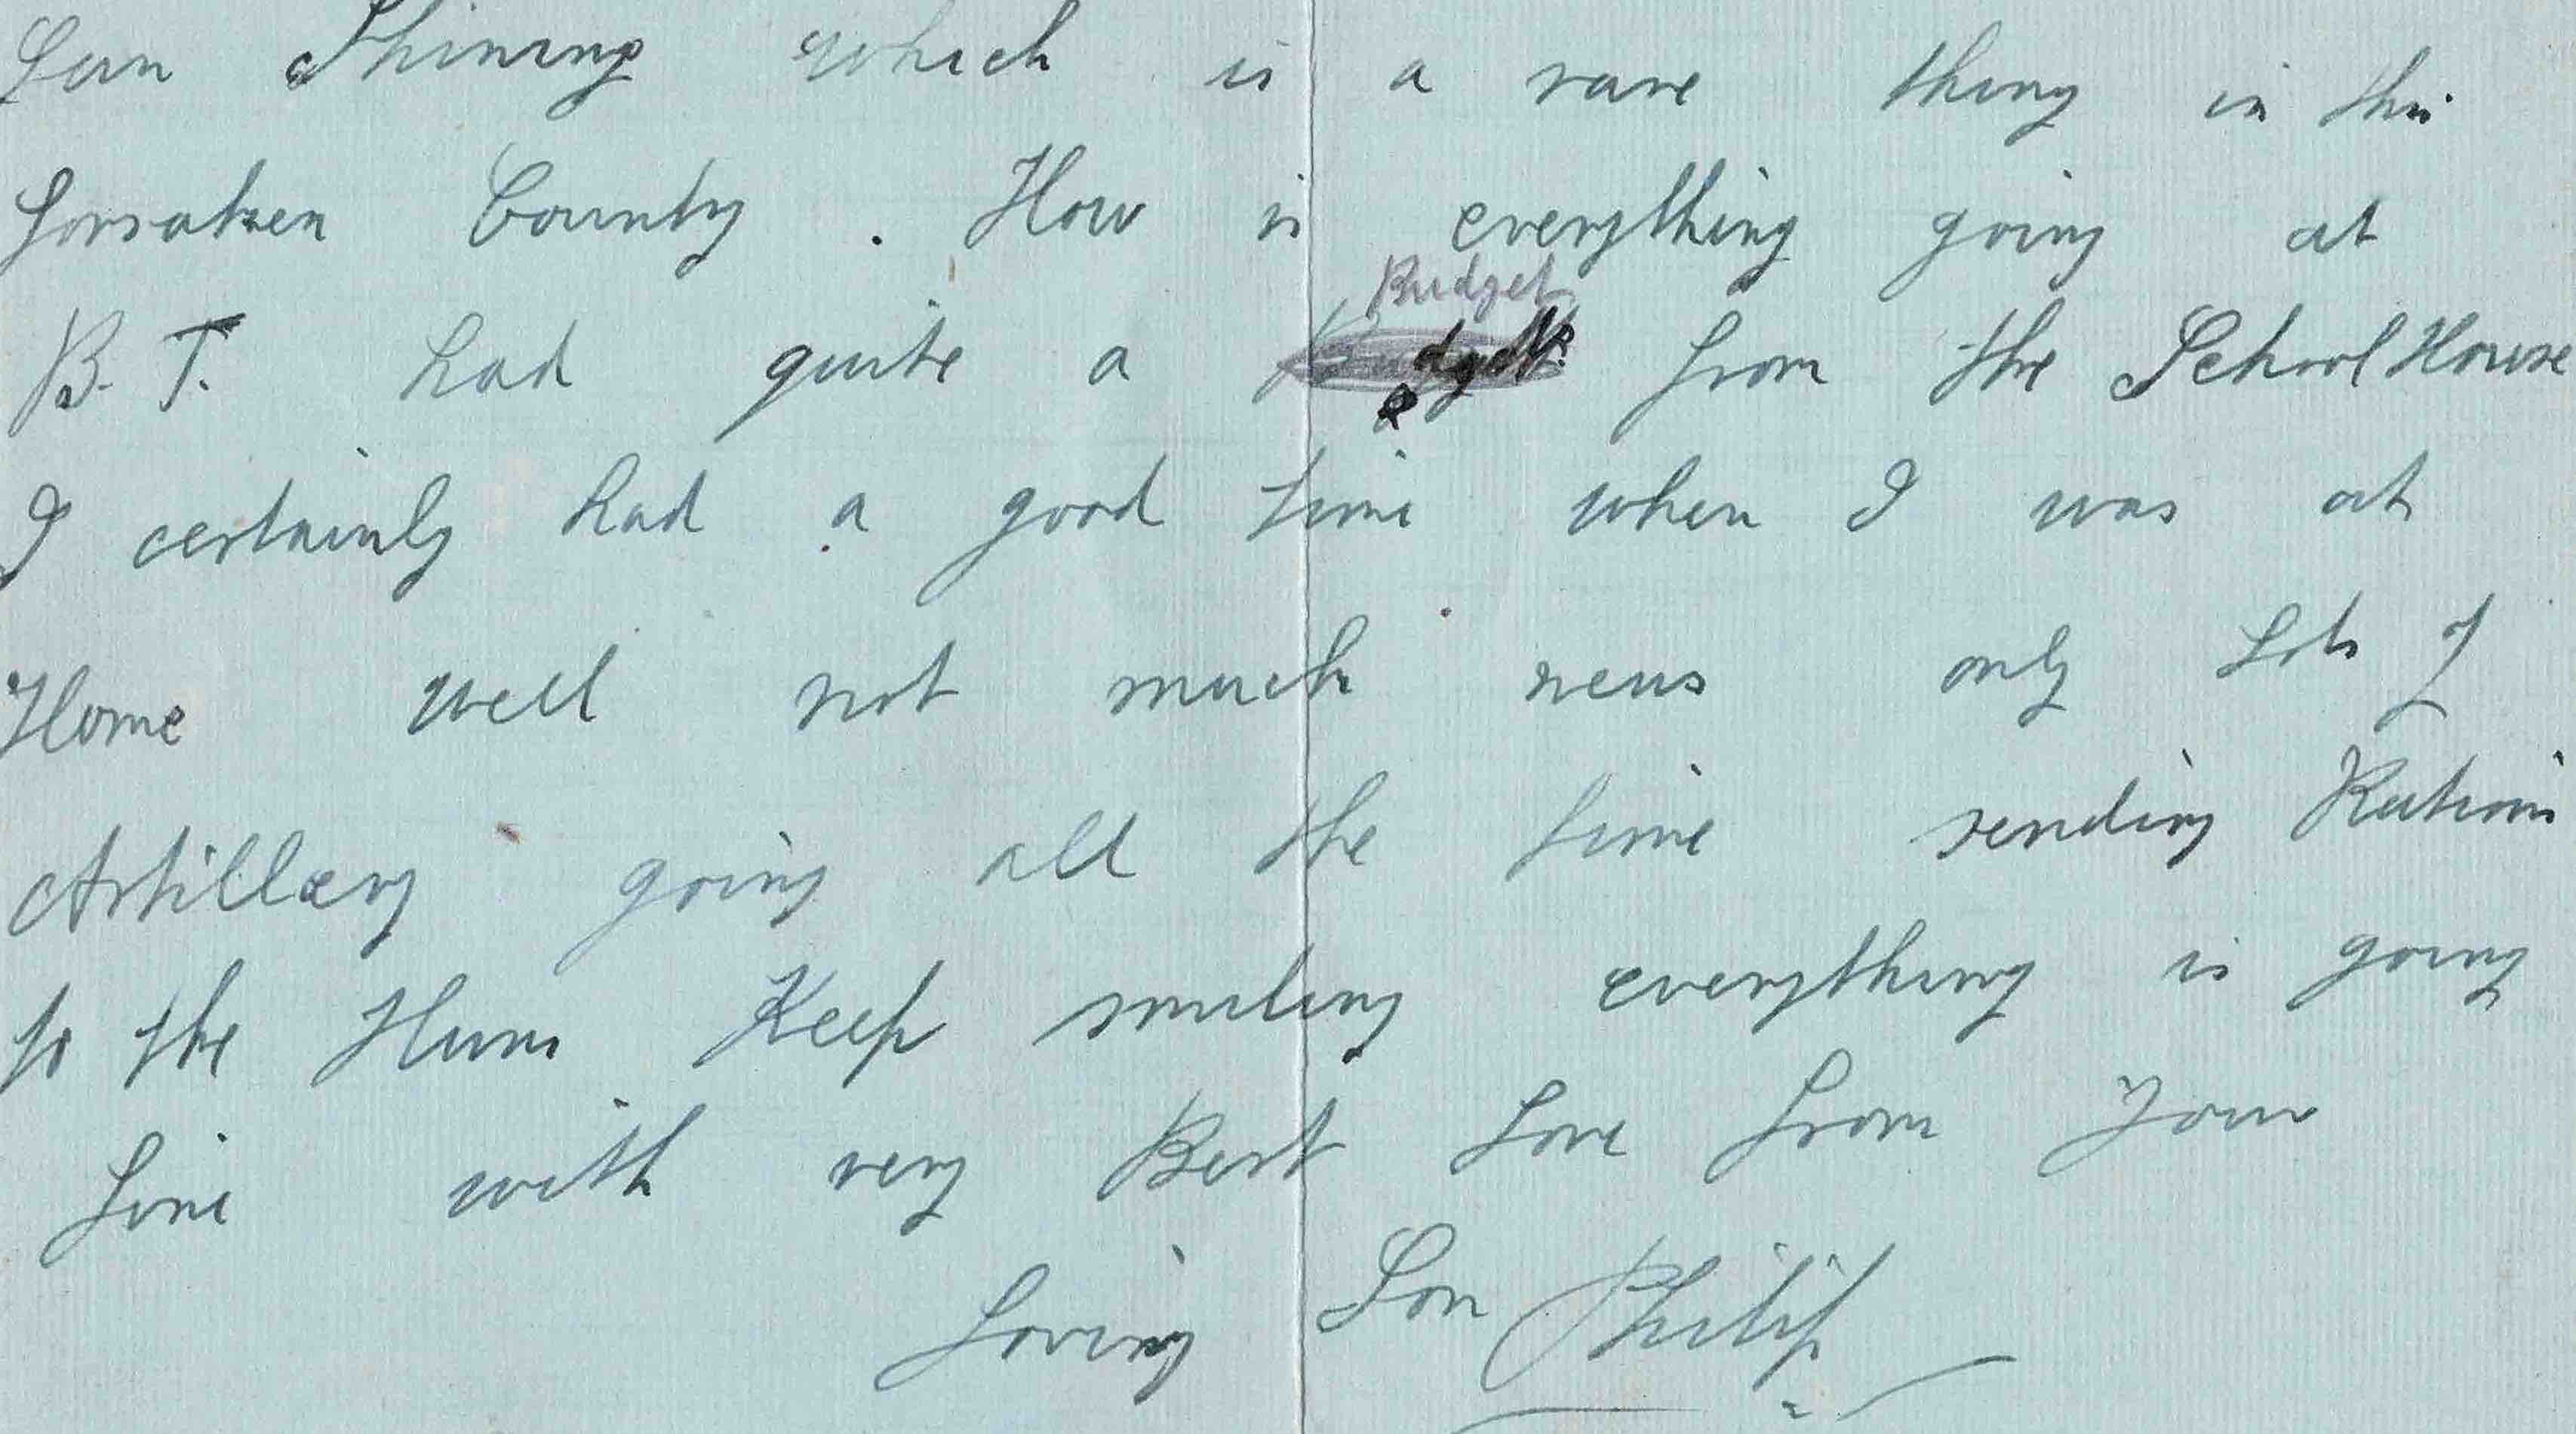 Sun Shining which is a rare thing in this
forsaken County. How is everything going at
Budget
B. T. had quite a Budget from the School House
I certainly had a good time when I was at
Home well not much news only Lots of
Artillery going all the time sending Rations
to the Huns Keep smiling everything is going
fine with very Best Love from Your
Loving Son Philip